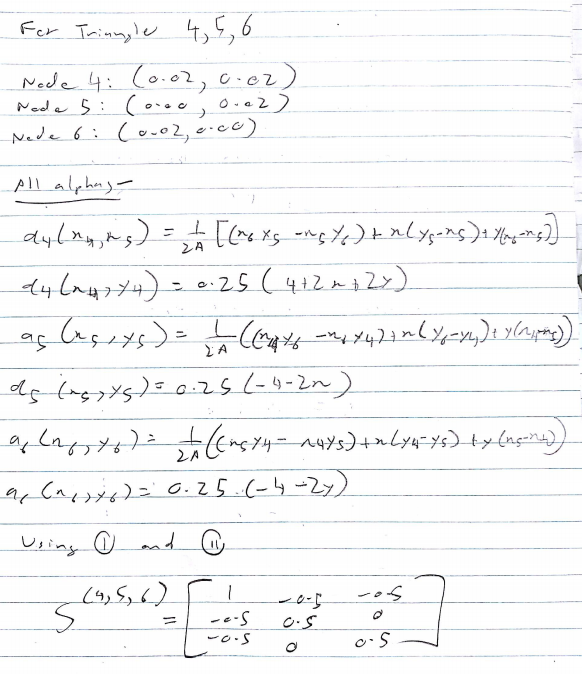 For Triangle 4,5,6
Node 4: (0.02, 0.02)
Node 5: (0.00, 0.02)
Node 6: (0.02, 0.00)
All alphas-
α4(x4,x5) = 1/2A [(x6 x5 - x5 y6) + x(y5-x5) + y(x6-x5)]
α4(x4, y4) = 0.25 (4+2x+2y)
α5 (x5, y5) = 1/2A ((x4y6 - x6 y4) + x(y6-y4) + y(x4-x5))
α5 (x5, y5) = 0.25 (-4-2x)
α6 (x6, y6) = 1/2A ((x5y4 - x4y5) + x(y4-y5) + y(x5-x4))
α6 (x6, y6) = 0.25 (-4-2y)
Using (I) and (II)
S^(4,5,6) = [ 1 -0.5 -0.5
-0.5 0.5 0
-0.5 0 0.5 ]